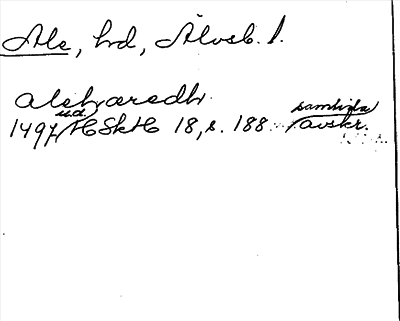 Ale, hd, Älvsb. l.
alehæredh
u.d.
1497 HSkH 18, s. 188. samtida avskr.